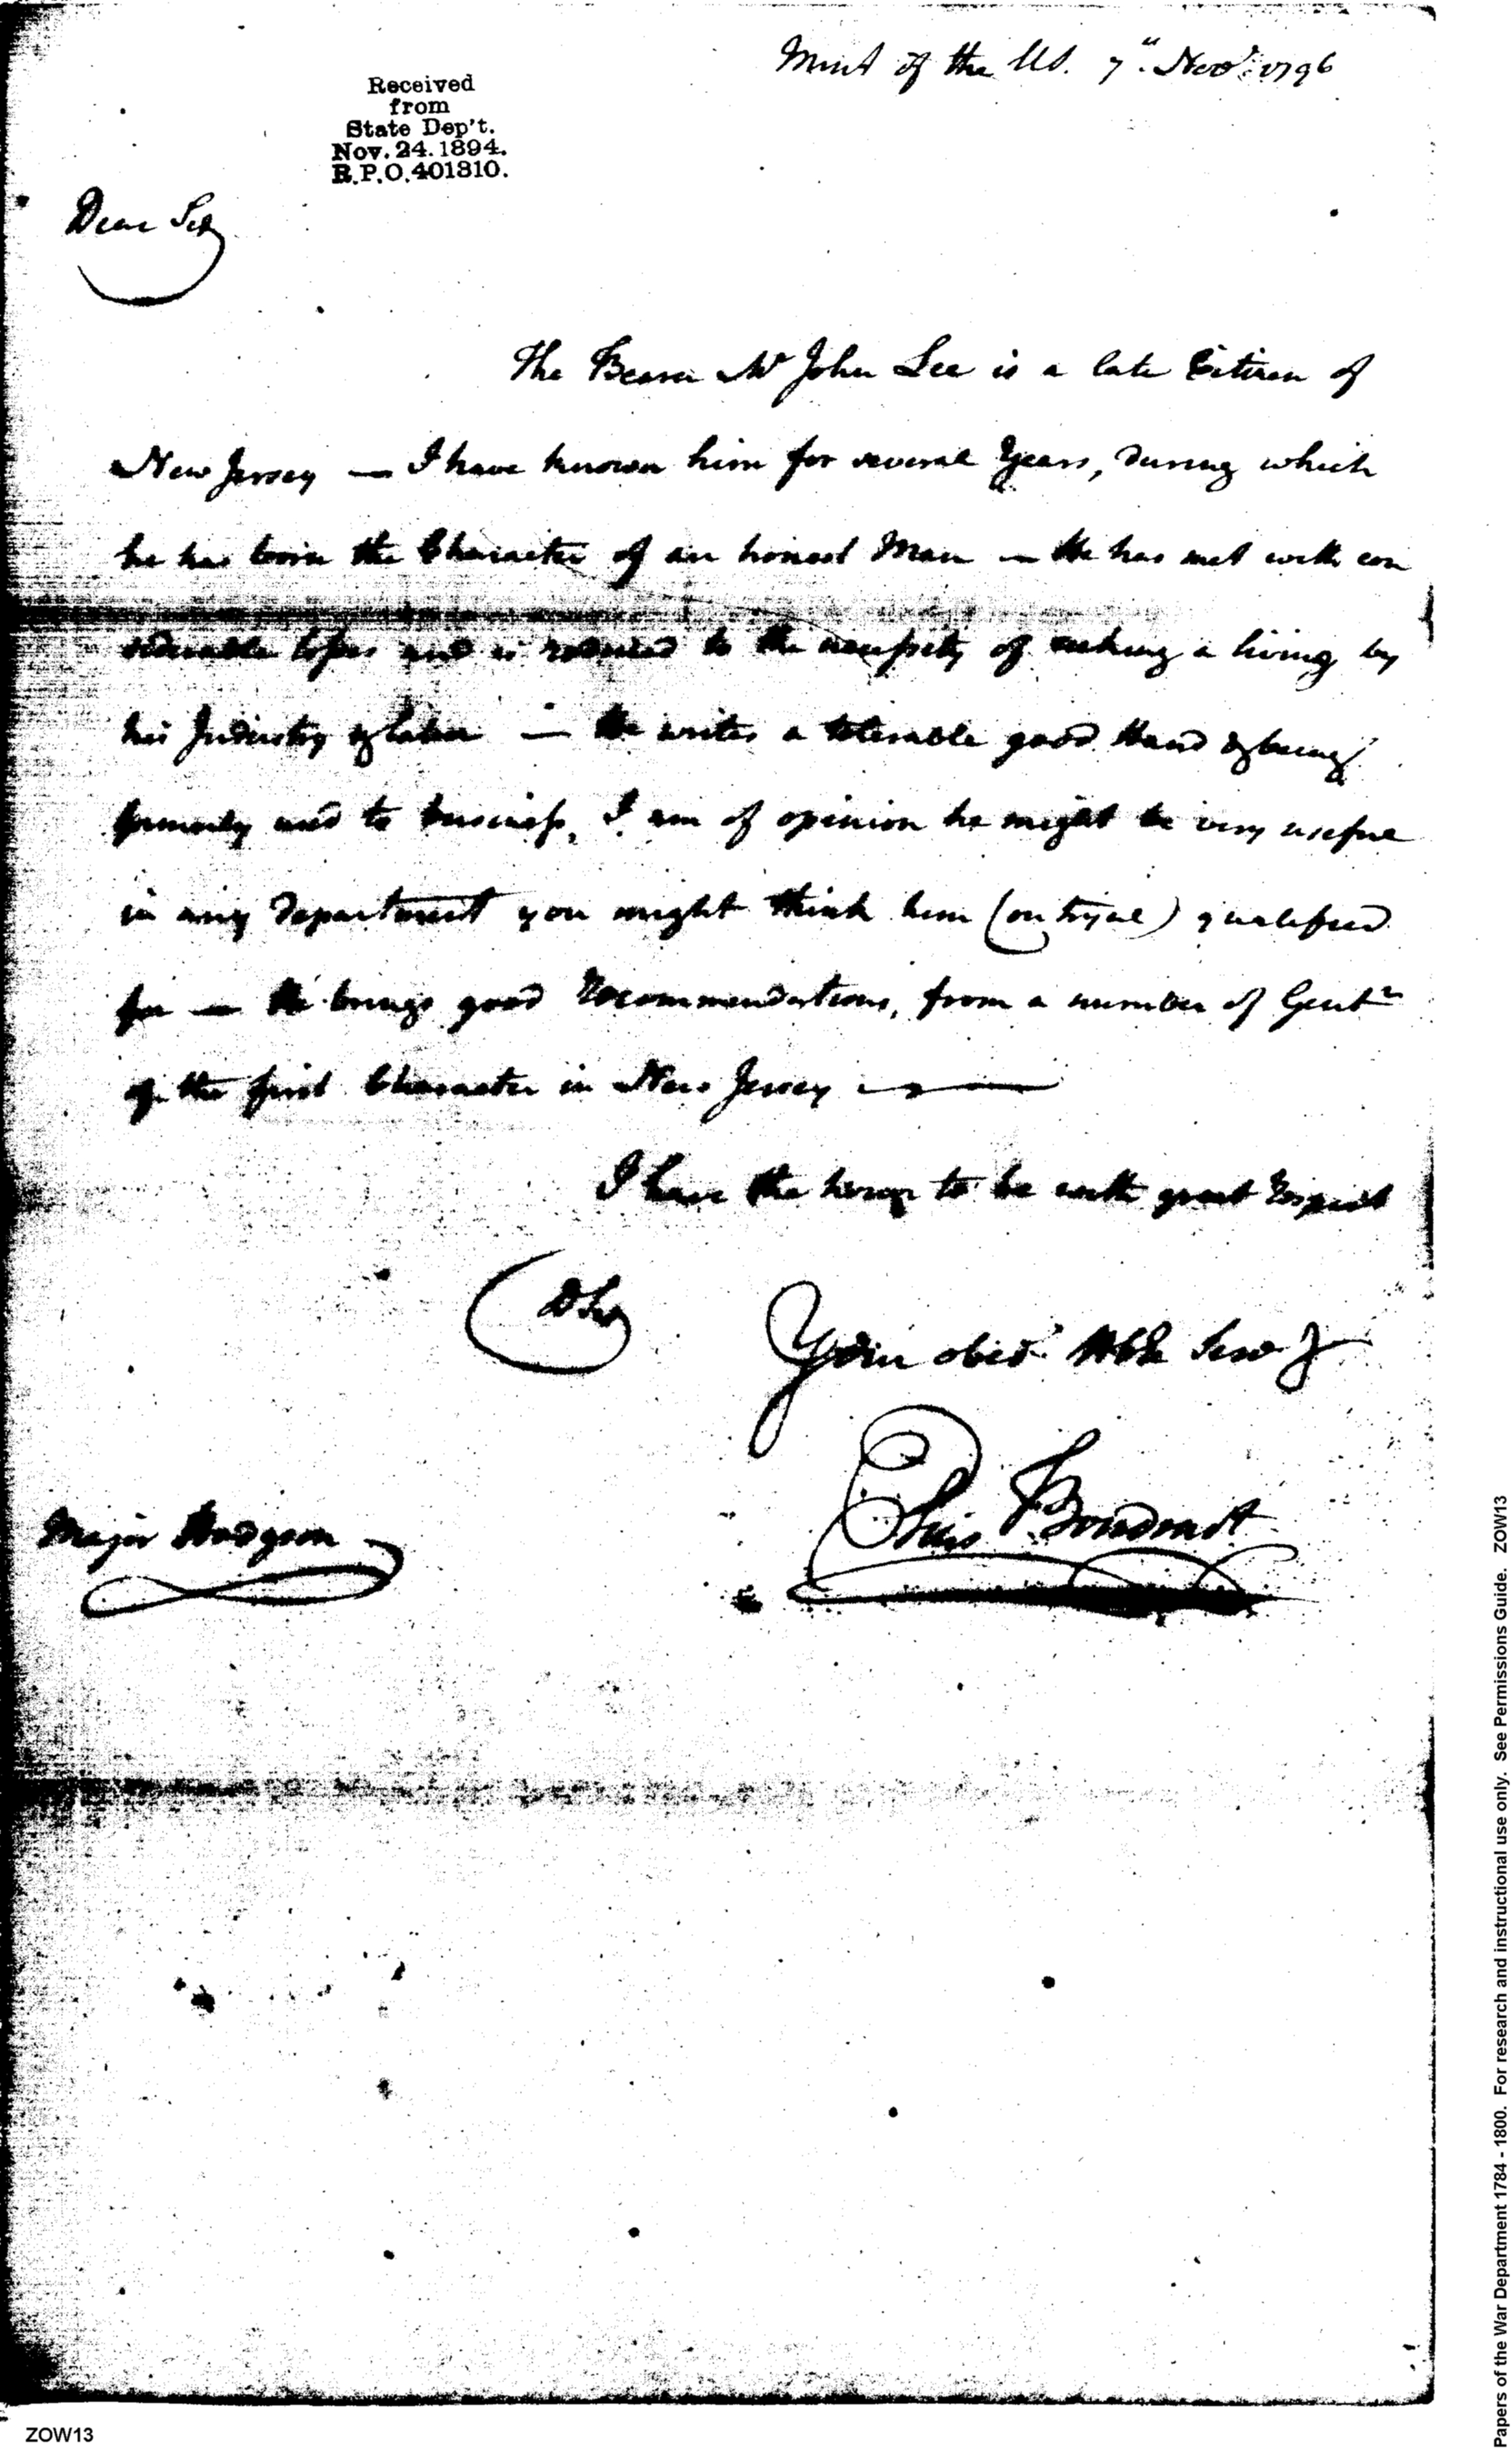 Mint of the US. 7th. Novr. 1796
Received
from
State Dep't.
Nov. 24. 1894.
R.P.O. 401810.
Dear Sir
The Bearer Mr John Lee is a late Citizen of
New Jersey — I have known him for several Years, during which
he has born the Character of an honest Man — He has met with con
siderable losses and is reduced to the necessity of making a living by
his Industry & labor — He writes a tolerable good Hand & being
formerly used to business, I am of opinion he might be very useful
in any department you might think him (on tryal) qualified
for — He brings good Recommendations, from a number of Gentn
of the first Character in New Jersey —
I have the honor to be with great Respect
D Sir
Your obedt Hble Servt
Elias Boudinot
Major Hodgson
ZOW13
Papers of the War Department 1784 - 1800. For research and instructional use only. See Permissions Guide. ZOW13